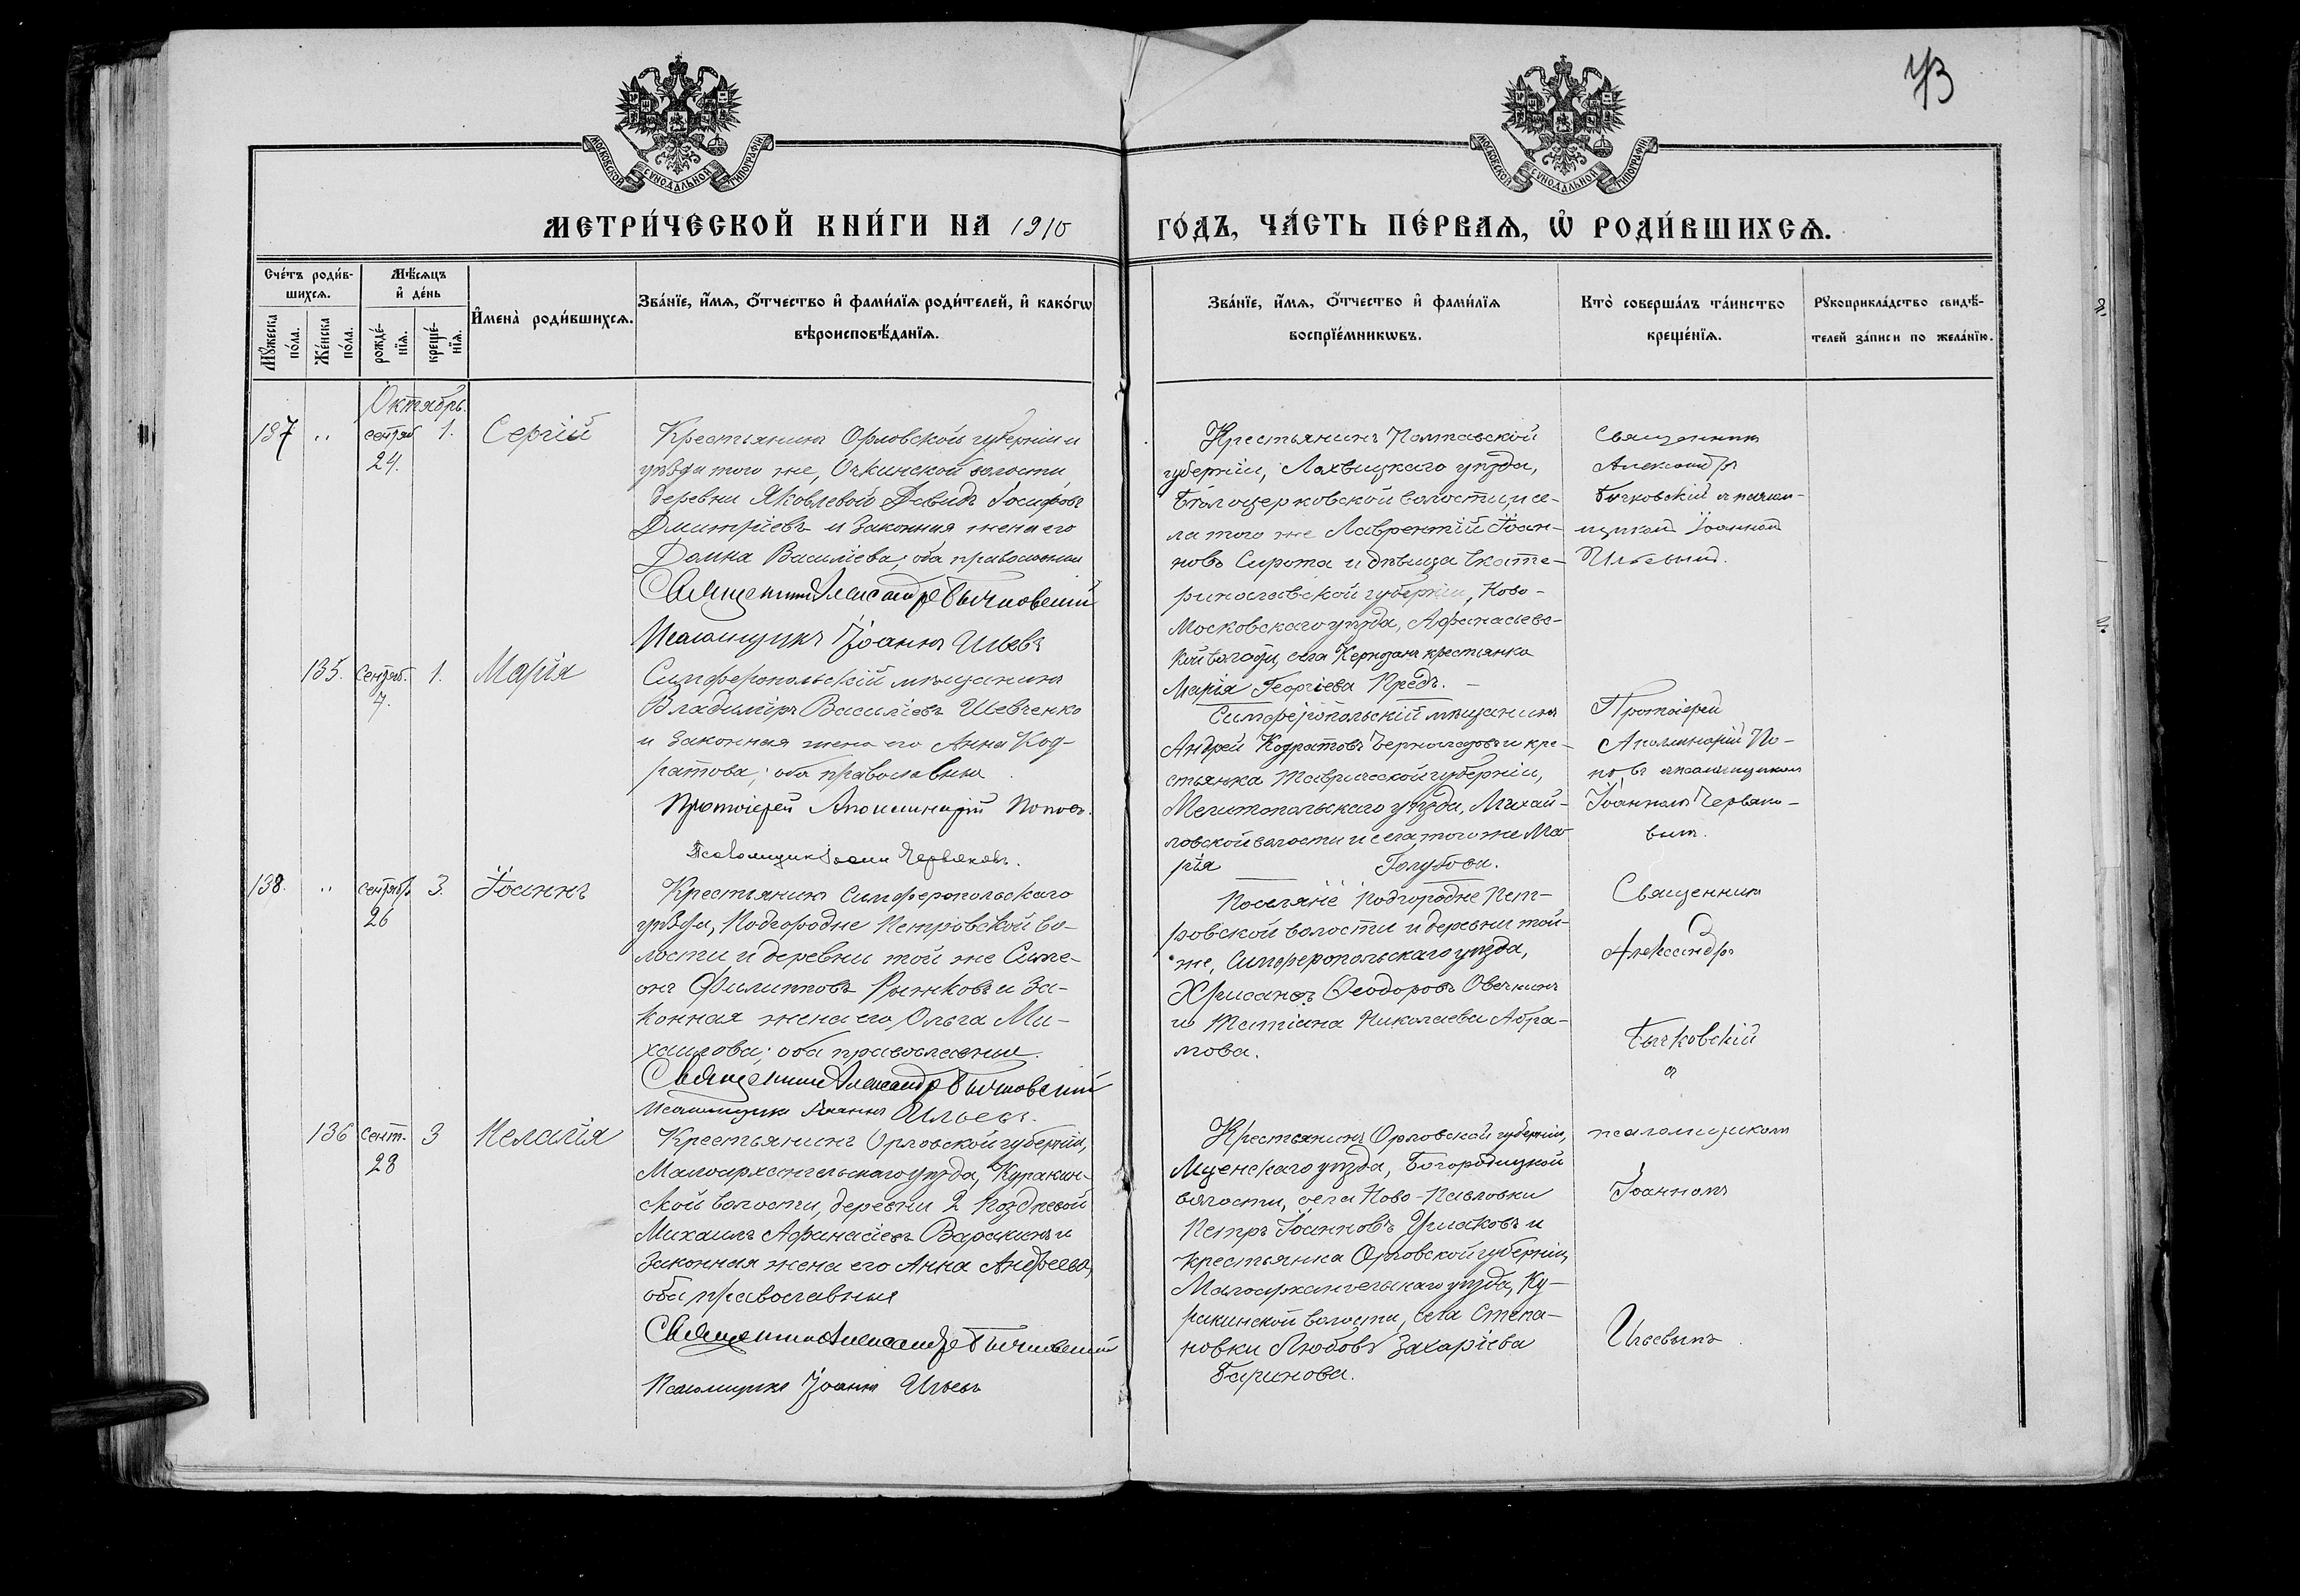 43
МОСКОВСКОЙ СѴНОДАЛЬНОЙ ТИПОГРАФІИ
МОСКОВСКОЙ СѴНОДАЛЬНОЙ ТИПОГРАФІИ
МЕТРИ́ЧЕСКОЙ КНИ́ГИ НА 1910
ГО́ДЪ, ЧА́СТЬ ПЕ́РВАѦ, Ѡ҆ РОДИ́ВШИХСѦ.
Сче́тъ роди́в-
шихсѧ.
Мꙋ́жеска по́ла.
Же́нска по́ла.
Мѣ́сѧцъ
и҆ де́нь
рожде́-
нїѧ.
креще́-
нїѧ.
И҆мена̀ роди́вшихсѧ.
Зва́нїе, и҆́мѧ, ѻ҆́тчество и҆ фами́лїѧ роди́телей, и҆ како́гѡ
вѣроисповѣ́данїѧ.
Зва́нїе, и҆́мѧ, ѻ҆́тчество и҆ фами́лїѧ
воспрїе́мникѡвъ.
Кто̀ соверша́лъ та́инство
креще́нїѧ.
Рꙋкоприкла́дство свидѣ́-
телей за́писи по жела́нїю.
Октябрь.
137 " сентяб 1. Сергій
24.
Крестьянинъ Орловской губерніи и
уѣзда того же, Очкинской волости
деревни Яковлевой Давидъ Іосифовъ
Дмитріевъ и законная жена его
Домна Василіева, оба православные
Священникъ Александръ Бычковскій
Псаломщикъ Іоаннъ Ильевъ
Крестьянинъ Полтавской
губерніи, Лохвицкаго уѣзда,
Бѣлоцерковской волости, и се-
ла того же Лаврентій Іоан-
новъ Сирота и дѣвица Екате-
ринославской губерніи, Ново-
Московскаго уѣзда, Афанасьевс-
кой волости, села крестьянка
Марія Георгіева Предъ.
Священникъ
Александръ
Бычковскій съ псалом-
щикомъ Іоанномъ
Ильевымъ.
135. Сентяб. 1. Марія
7.
Симферопольскій мѣщанинъ
Владиміръ Василіевъ Шевченко
и законная жена его Анна Код-
ратова; оба православные.
Протоіерей Аполлинарій Поповъ.
Псаломщикъ Іоаннъ Червяковъ.
Симферопольскій мѣщанинъ
Андрей Кодратовъ и кре-
стьянка Таврической губерніи,
Мелитопольскаго уѣзда, Михай-
ловской волости и села того же Ма-
рія Голубова.
Протоіерей
Аполлинарій По-
повъ съ псаломщикомъ
Іоанномъ Червяко-
вымъ.
138. " сентяб. 3. Іоаннъ
26
Крестьянинъ Симферопольскаго
уѣзда, Подгородне Петровской во-
лости и деревни той же Симе-
онъ Филипповъ Рыжковъ и за-
конная жена его Ольга Ми-
хаилова; оба православные.
Священникъ Александръ Бычковскій
Псаломщикъ Іоаннъ Ильевъ.
Поселяне Подгородне Пет-
ровской волости и деревни той-
же, Симферопольскаго уѣзда,
Хрисанѳъ Ѳеодоровъ Овечкинъ
и Татіана Николаева Абра-
мова.
Священникъ
Александръ
Бычковскій
съ
136 Сент. 3 Пелагія
28
Крестьянинъ Орловской губерніи,
Малоархангельскаго уѣзда, Куракин-
ской волости, деревни 2 Поздневой
Михаилъ Афанасіевъ Варакинъ и
законная жена его Анна Андреева,
оба православные
Священникъ Александръ Бычковскій
Псаломщикъ Іоаннъ Ильевъ
Крестьянинъ Орловской губерніи,
Мценскаго уѣзда, Богородицкой
волости, села Ново-Павловки
Петръ Іоанновъ Ушаковъ и
крестьянка Орловской губерніи,
Малоархангельскаго уѣзда, Ку-
ракинской волости, села Степа-
новки Любовь Захаріева
Баринова.
псаломщикомъ
Іоанномъ
Ильевымъ.